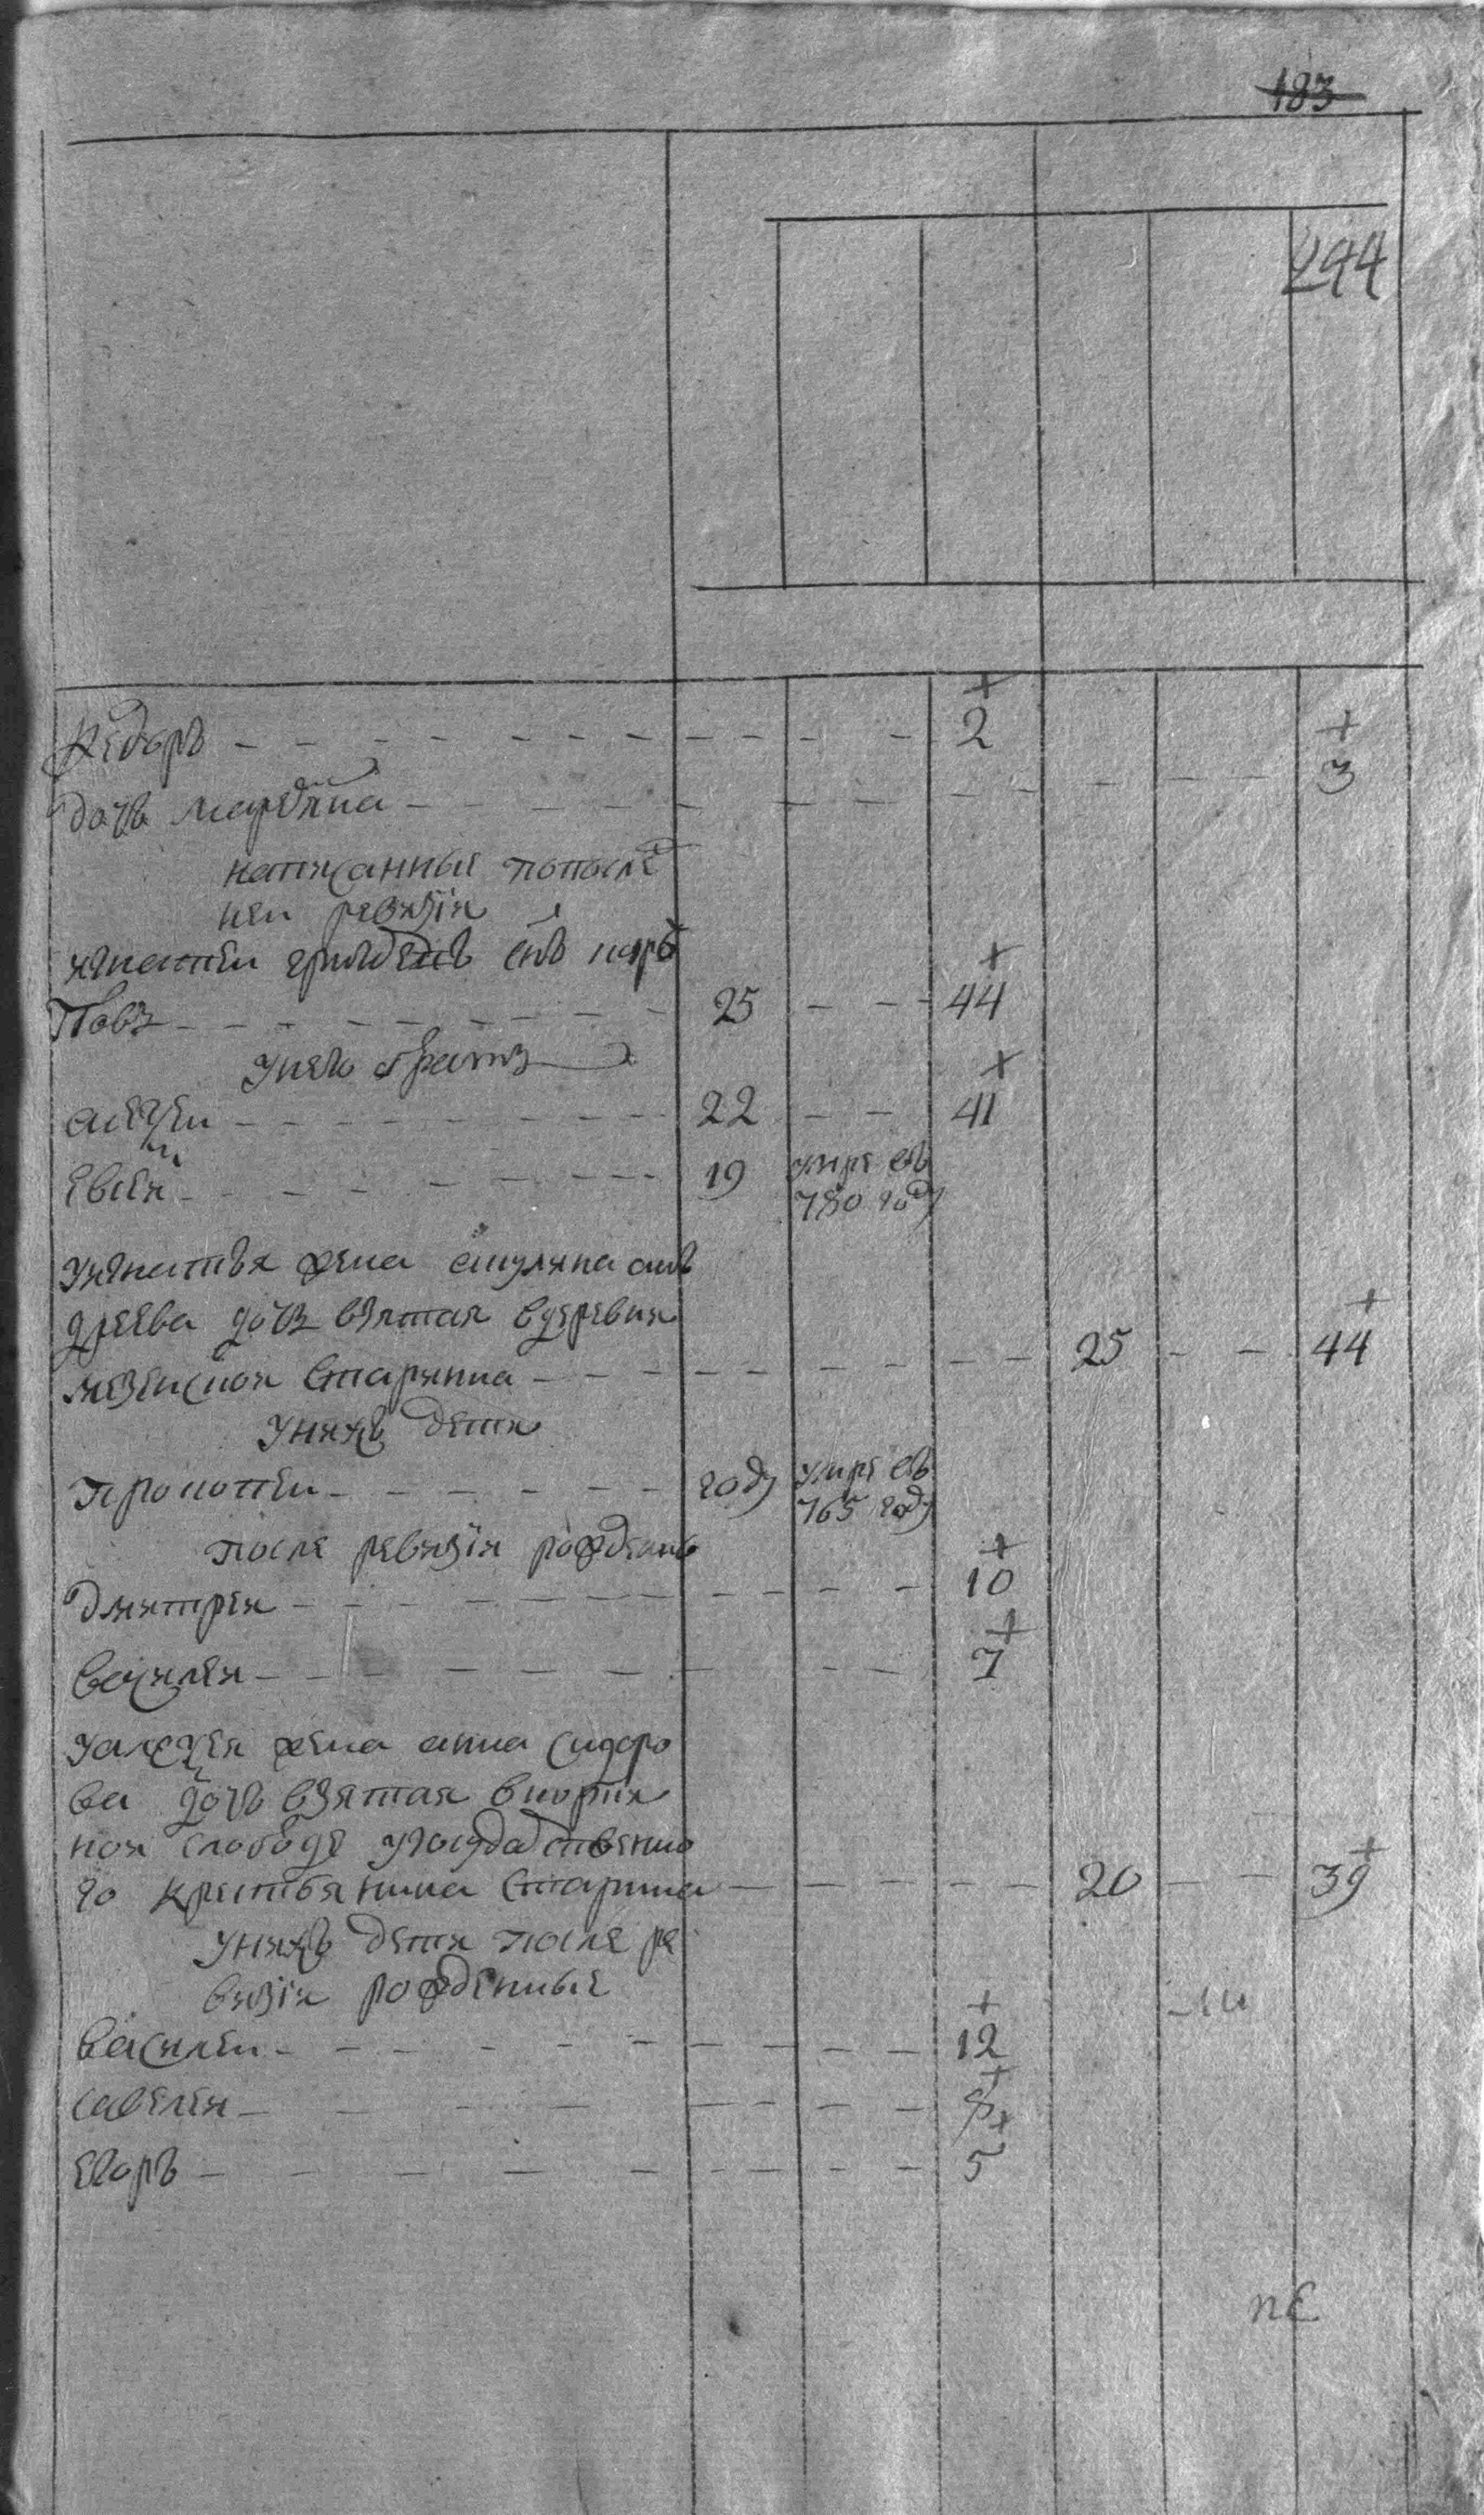 183
244
Федоръ - - - 2
дочь марфина - - - 3
написанные попослѣд
ней ревизiи
игнатей
повъ - - - 25 - - 44
унего братъ
алеѯей - - - 22 - - 41
евсей - - - 19 умре въ
780 году
уигнатья жена акулина анъ
дреева дочь взятая вдеревни
старинна - - - 25 - - 44
унихъ дети
прокопей - - - году умре въ
765 году
после ревизiи рожденые
дмитрей - - - 10
василей - - - 7
уалеѯея жена анна сидоро
ва дочь взятая
ной слободе угосудаственно
го крестьянина старинна - - - 20 - - 39
унихъ дети после ре
визiи рожденные
василей - - - 12
савелей - - - 8
егоръ - - - 5